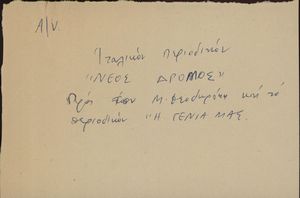 Α/V.
Ἰταλικόν περιοδικόν
"ΝΕΟΣ ΔΡΟΜΟΣ"
Πρός Μ. Θεοδωράκη καί τό
περιοδικόν "Η ΓΕΝΙΑ ΜΑΣ.